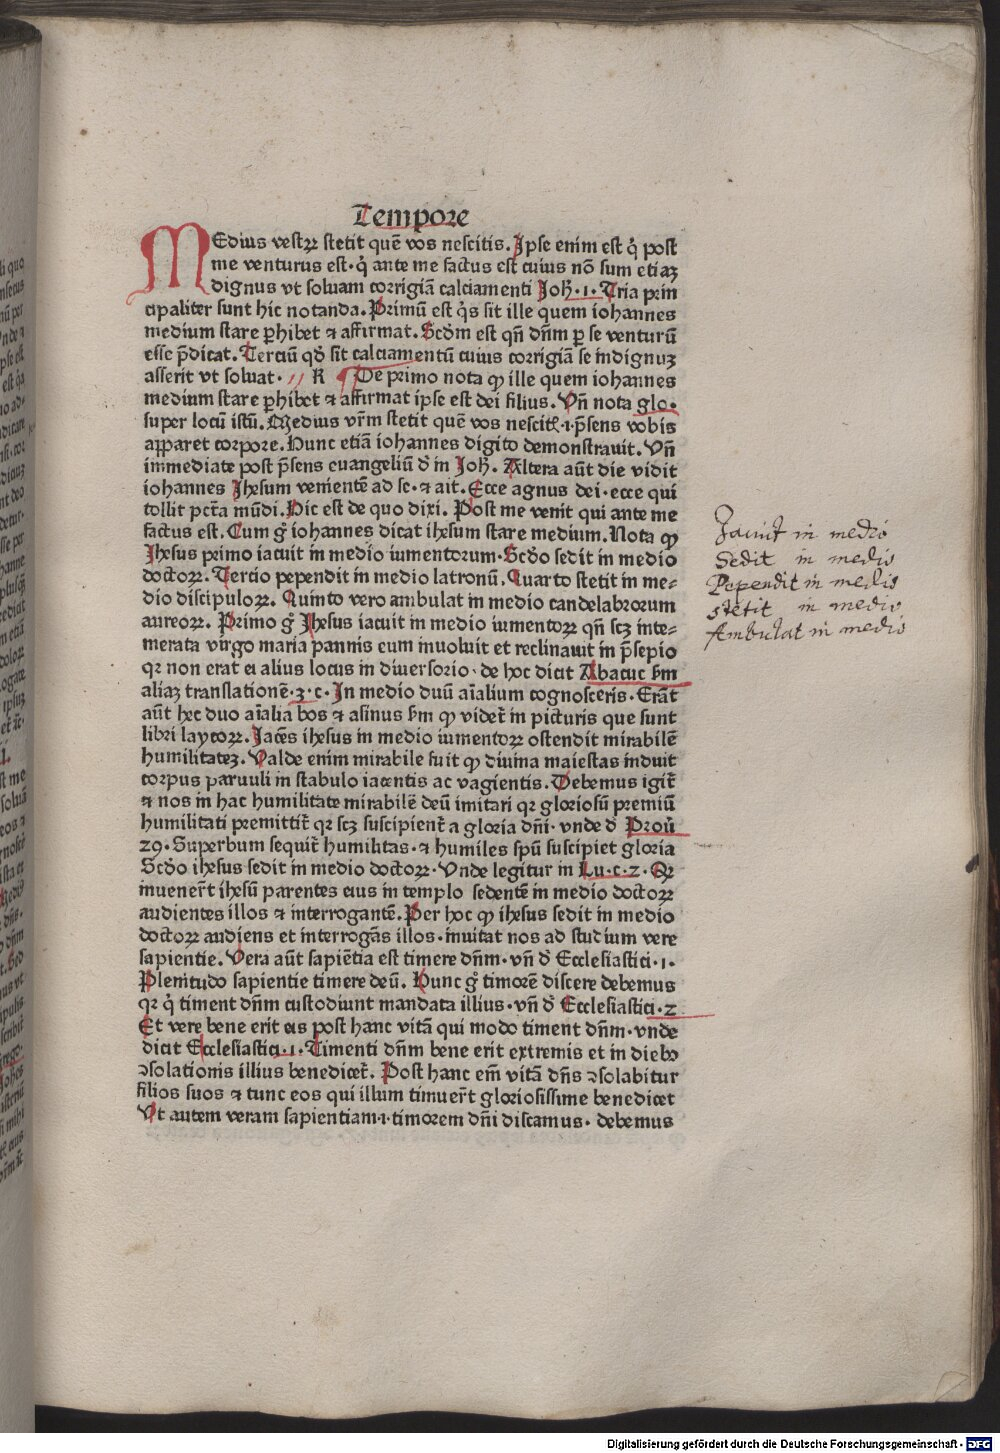 Tempore
MEdius vestꝝ stetit quē vos nescitis. Ipse enim est q̇ post
me venturus est. q̇ ante me factus est cuius nō sum etiaꝫ
dignus vt soluam corrigiā calciamenti Joh̄. 1. Tria prin
cipaliter sunt hic notanda. Primū est q̇s sit ille quem iohannes
medium stare ꝑhibet ⁊ affirmat. Scd̄m est qn̄ dn̄m ꝑ se venturū
esse p̄dicat. Terciū qd̄ sit calciamentū cuius corrigiā se indignuꝫ
asserit vt soluat. // R ¶ De primo nota ꝙ ille quem iohannes
medium stare ꝑhibet ⁊ affirmat ipse est dei filius. Vn̄ nota glo.
super locū istū. Medius vr̄m stetit quē vos nescitꝭ .i. p̄sens vobis
apparet corpore. Hunc etiā iohannes digito demonstrauit. Vn̄
immediate post p̄sens euangeliū d̄ in Joh̄. Altera aūt die vidit
iohannes Jhesum venientē ad se. ⁊ ait. Ecce agnus dei. ecce qui
tollit pctā mūdi. Hic est de quo dixi. Post me venit qui ante me
factus est. Cum g̊ iohannes dicat ihesum stare medium. Nota ꝙ
Jhesus primo iacuit in medio iumentorum. Scd̄o sedit in medio
doctoꝝ. Tercio pependit in medio latronū. Quarto stetit in me-
dio discipuloꝝ. Quinto vero ambulat in medio candelabrorum
aureoꝝ. Primo g̊ Jhesus iacuit in medio iumentoꝝ qn̄ scꝫ inte-
merata virgo maria pannis eum inuoluit et reclinauit in p̄sepio
qꝛ non erat ei alius locus in diuersorio. de hoc dicit Abacuc ẜm
aliaꝫ translationē .3. c. In medio duū aīalium cognosceris. Erāt
aūt hec duo aīalia bos ⁊ asinus ẜm ꝙ videt̄ in picturis que sunt
libri laycoꝝ. Jacēs ihesus in medio iumentoꝝ ostendit mirabilē
humilitateꝫ. Valde enim mirabile fuit ꝙ diuina maiestas induit
corpus paruuli in stabulo iacentis ac vagientis. Debemus igit̄
⁊ nos in hac humilitate mirabilē deū imitari qꝛ gloriosū premiū
humilitati premittit̄ qꝛ scꝫ suscipient̄ a gloria dn̄i. vnde d̄ Prou̇
29. Superbum sequit̄ humilitas. ⁊ humiles spū suscipiet gloria
Scd̄o ihesus sedit in medio doctoꝝ. Vnde legitur in Lu. c. 2. Qꝛ
inuener̄t ihesū parentes eius in templo sedentē in medio doctoꝝ
audientes illos ⁊ interrogantē. Per hoc ꝙ ihesus sedit in medio
doctoꝝ audiens et interrogās illos. inuitat nos ad studium vere
sapientie. Vera aūt sapiētia est timere dn̄m. vn̄ d̄ Ecclesiastici .1.
Plenitudo sapientie timere deū. Hunc g̊ timorē discere debemus
qꝛ q̇ timent dn̄m custodiunt mandata illius. vn̄ d̄ Ecclesiastici. 2
Et vere bene erit eis post hanc vitā qui modo timent dn̄m. vnde
dicit Ecclesiastici. 1. Timenti dn̄m bene erit extremis et in diebꝰ
ꝯsolationis illius benedicet̄. Post hanc em̄ vitā dn̄s ꝯsolabitur
filios suos ⁊ tunc eos qui illum timuer̄t gloriosissime benedicet
Vt autem veram sapientiam .i. timorem dn̄i discamus. debemus
Jacuit in medio
Sedit in medio
Pependit in medio
stetit in medio
Ambulat in medio
Digitalisierung gefördert durch die Deutsche Forschungsgemeinschaft - DFG